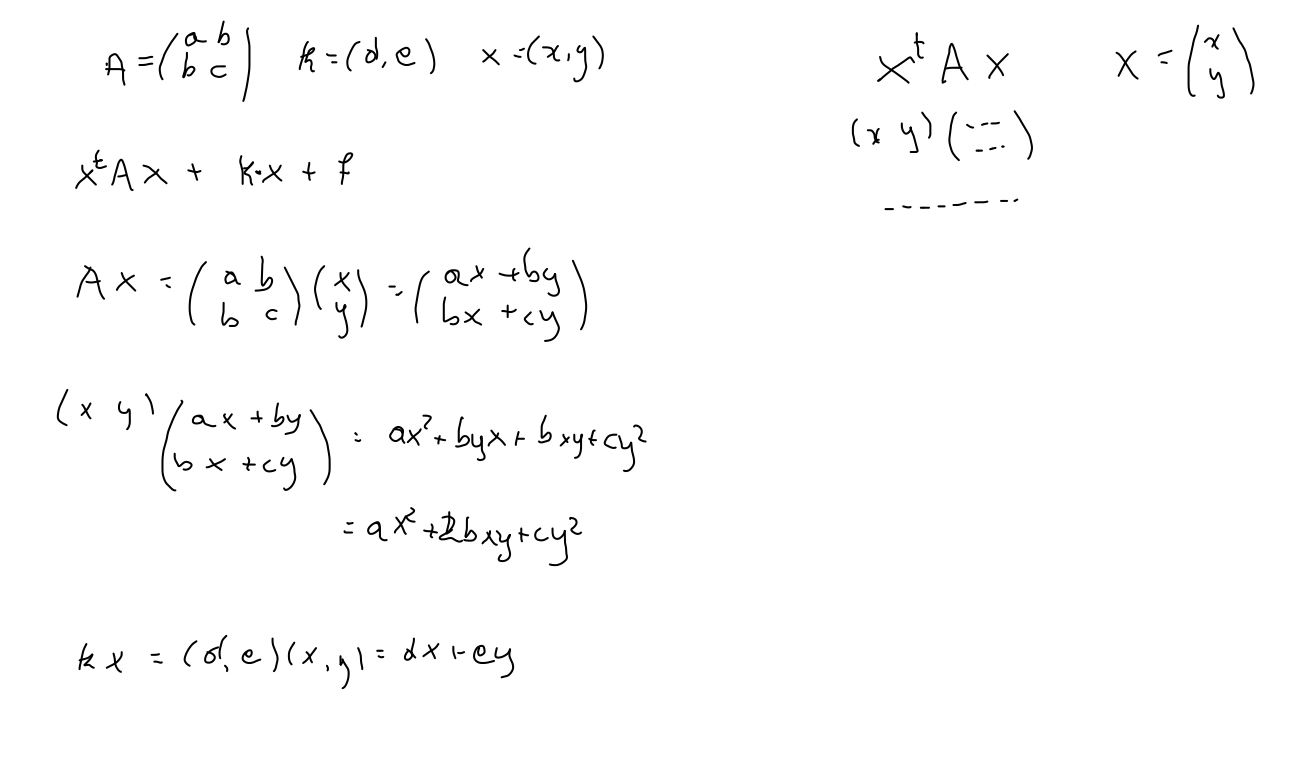 A = (a b
b c) k = (d, e) x = (x, y)
xᵗ A x + k·x + f
A x = (a b
b c) (x
y) = (ax + by
bx + cy)
(x y) (ax + by
bx + cy) = ax² + byx + bxy + cy²
= ax² + 2bxy + cy²
k x = (d, e)(x, y) = dx + ey
xᵗ A x x = (x
y)
(x y) (---
---)
--------